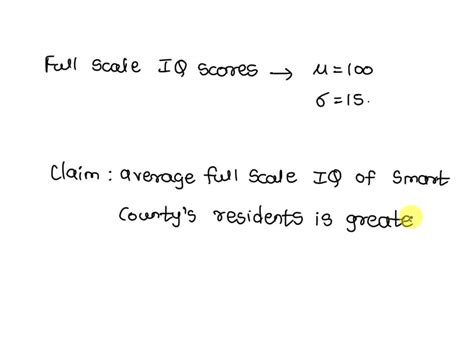 Full scale IQ scores → μ=100
σ=15.
Claim: average full scale IQ of smart
county's residents is greate